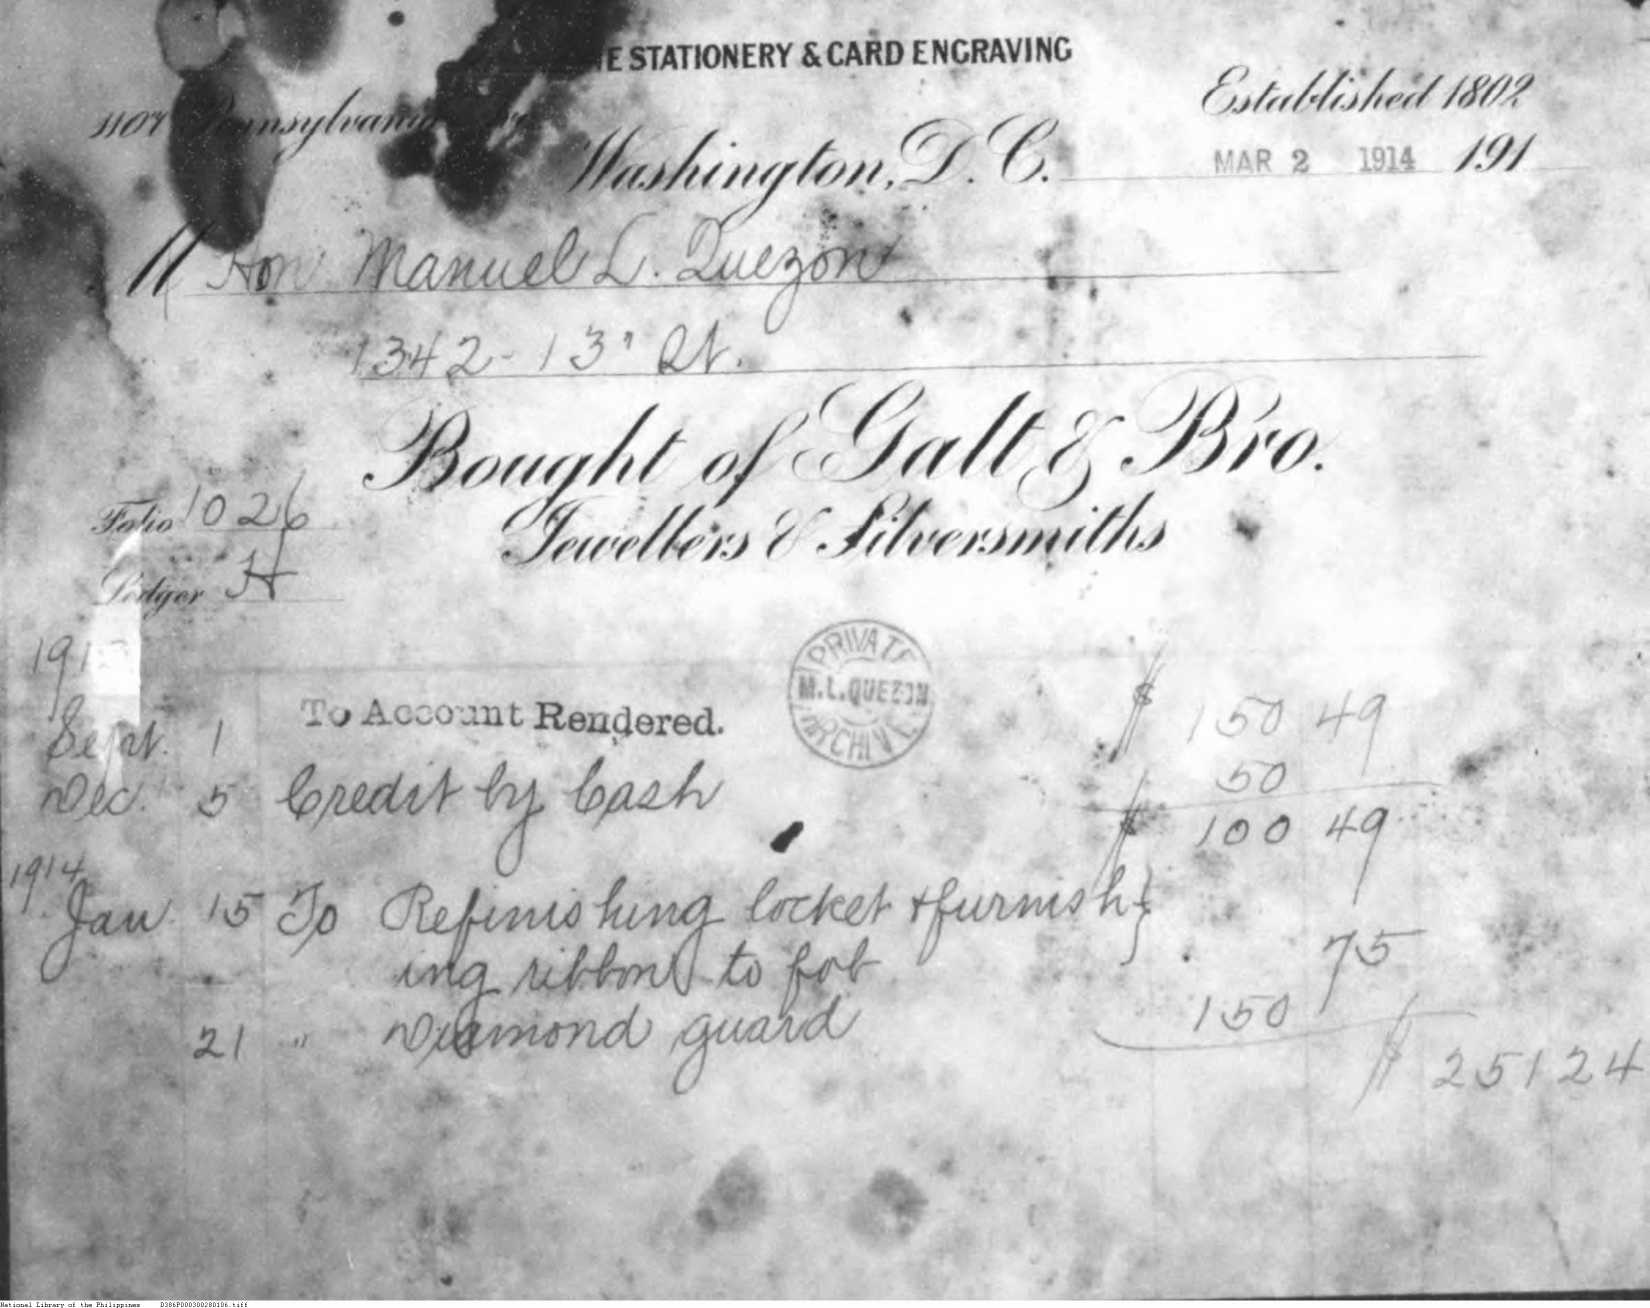 E STATIONERY & CARD ENGRAVING
1107 Pennsylvania
Established 1802
Washington, D. C. MAR 2 1914 191
M Hon. Manuel L. Quezon
1342 - 13" St.
Bought of Galt & Bro.
Jewellers & Silversmiths
Folio 1026
Ledger H
PRIVATE
M.L.QUEZON
ARCHIVE
Sept. 1 To Account Rendered. $ 150 49
Dec. 5 Credit by Cash 50
$ 100 49
1914
Jan 15 To Refinishing locket & furnish-
ing ribbon to fob 75
21 " Diamond guard 150
$ 251 24
National Library of the Philippines D386P000300280106.tiff